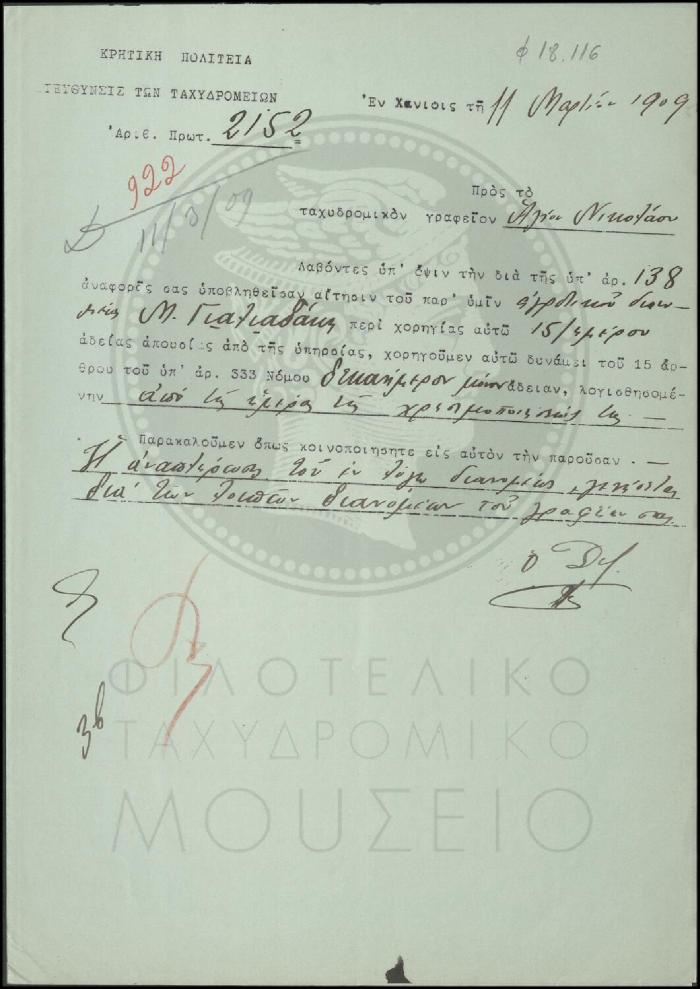 φ 18.116
ΚΡΗΤΙΚΗ ΠΟΛΙΤΕΙΑ
ΙΕΥΘΥΝΣΙΣ ΤΩΝ ΤΑΧΥΔΡΟΜΕΙΩΝ
Ἐν Χανίοις τῇ 11 Μαρτίου 1909
Ἀριθ. Πρωτ. 2152
922
11/3/09
Πρὸς τὸ
ταχυδρομικὸν γραφεῖον Ἁγίου Νικολάου
Λαβόντες ὑπ' ὄψιν τὴν διὰ τῆς ὑπ' ἀρ. 138
ἀναφορᾶς σας ὑποβληθεῖσαν αἴτησιν τοῦ παρ' ὑμῖν ἀγροτικοῦ διανο-
μέως Μ. Γιαλιαδάκη περὶ χορηγίας αὐτῷ 15/ημέρου
ἀδείας ἀπουσίας ἀπὸ τῆς ὑπηρσίας, χορηγοῦμεν αὐτῷ δυνάμει τοῦ 15 ἄρ-
θρου τοῦ ὑπ' ἀρ. 333 Νόμου δεκαήμερον μόνον ἄδειαν, λογισθησομέ-
νην ἀπὸ τῆς ἡμέρας τῆς χρησιμοποιήσεώς της. —
Παρακαλοῦμεν ὅπως κοινοποιήσητε εἰς αὐτὸν τὴν παροῦσαν. —
Ἡ ἀναπλήρωσις τοῦ ἐν λόγῳ διανομέως γενήσεται
διὰ τῶν λοιπῶν διανομέων τοῦ γραφείου σας
ὁ Δ/
3β
ΦΙΛΟΤΕΛΙΚΟ
ΤΑΧΥΔΡΟΜΙΚΟ
ΜΟΥΣΕΙΟ